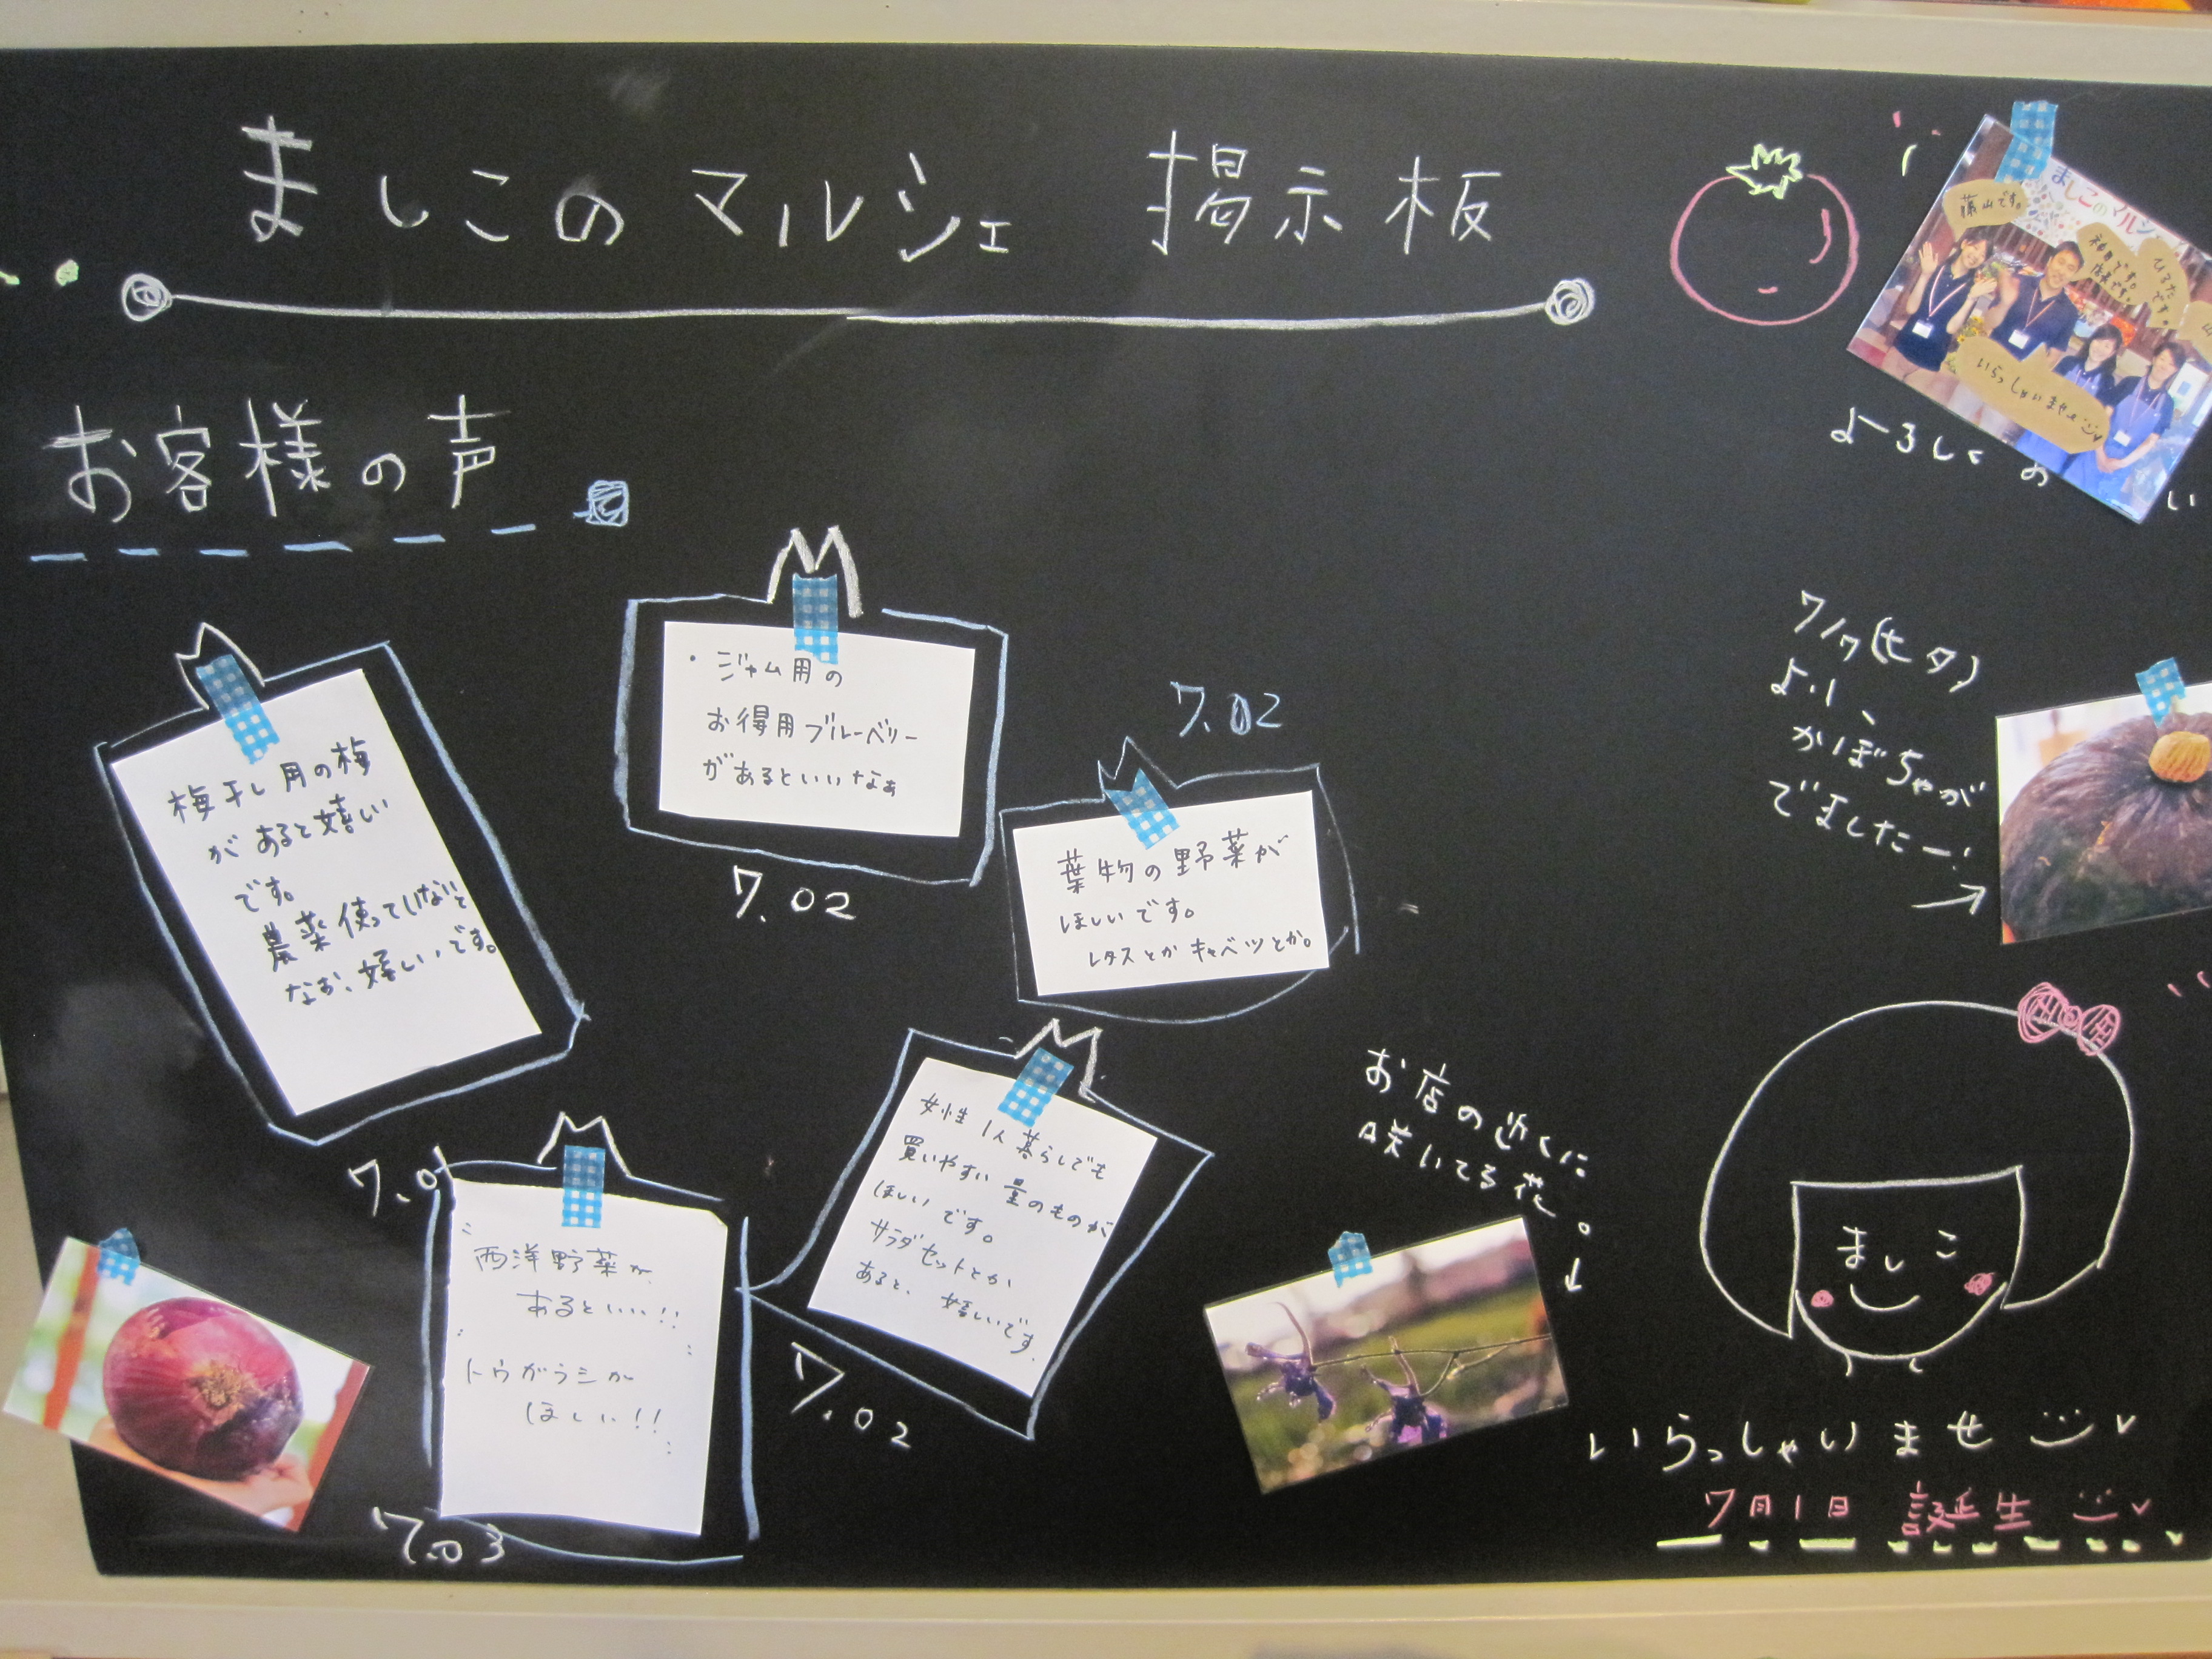 ましこのマルシェ 掲示板
お客様の声
梅干し用の梅
があると嬉しい
です。
農薬使っていないと
なお、嬉しいです。
7.0
・ジャム用の
お得用ブルーベリー
があるといいなぁ
7.02
7.02
葉物の野菜が
ほしいです。
レタスとかキャベツとか。
女性1人暮らしでも
買いやすい量のものが
ほしいです。
サラダセットとか
あると、嬉しいです
7.02
西洋野菜が
あるといい!!
トウガラシが
ほしい!!
7.03
ましこのマルシェ
藤山です。
店長です。
ひろたです。
いらっしゃいませ
よろしくお い
7/7(七夕)
より、
かぼちゃが
でましたー!
お店の近くに
咲いてる花。
ましこ
いらっしゃいませ
7月1日 誕生